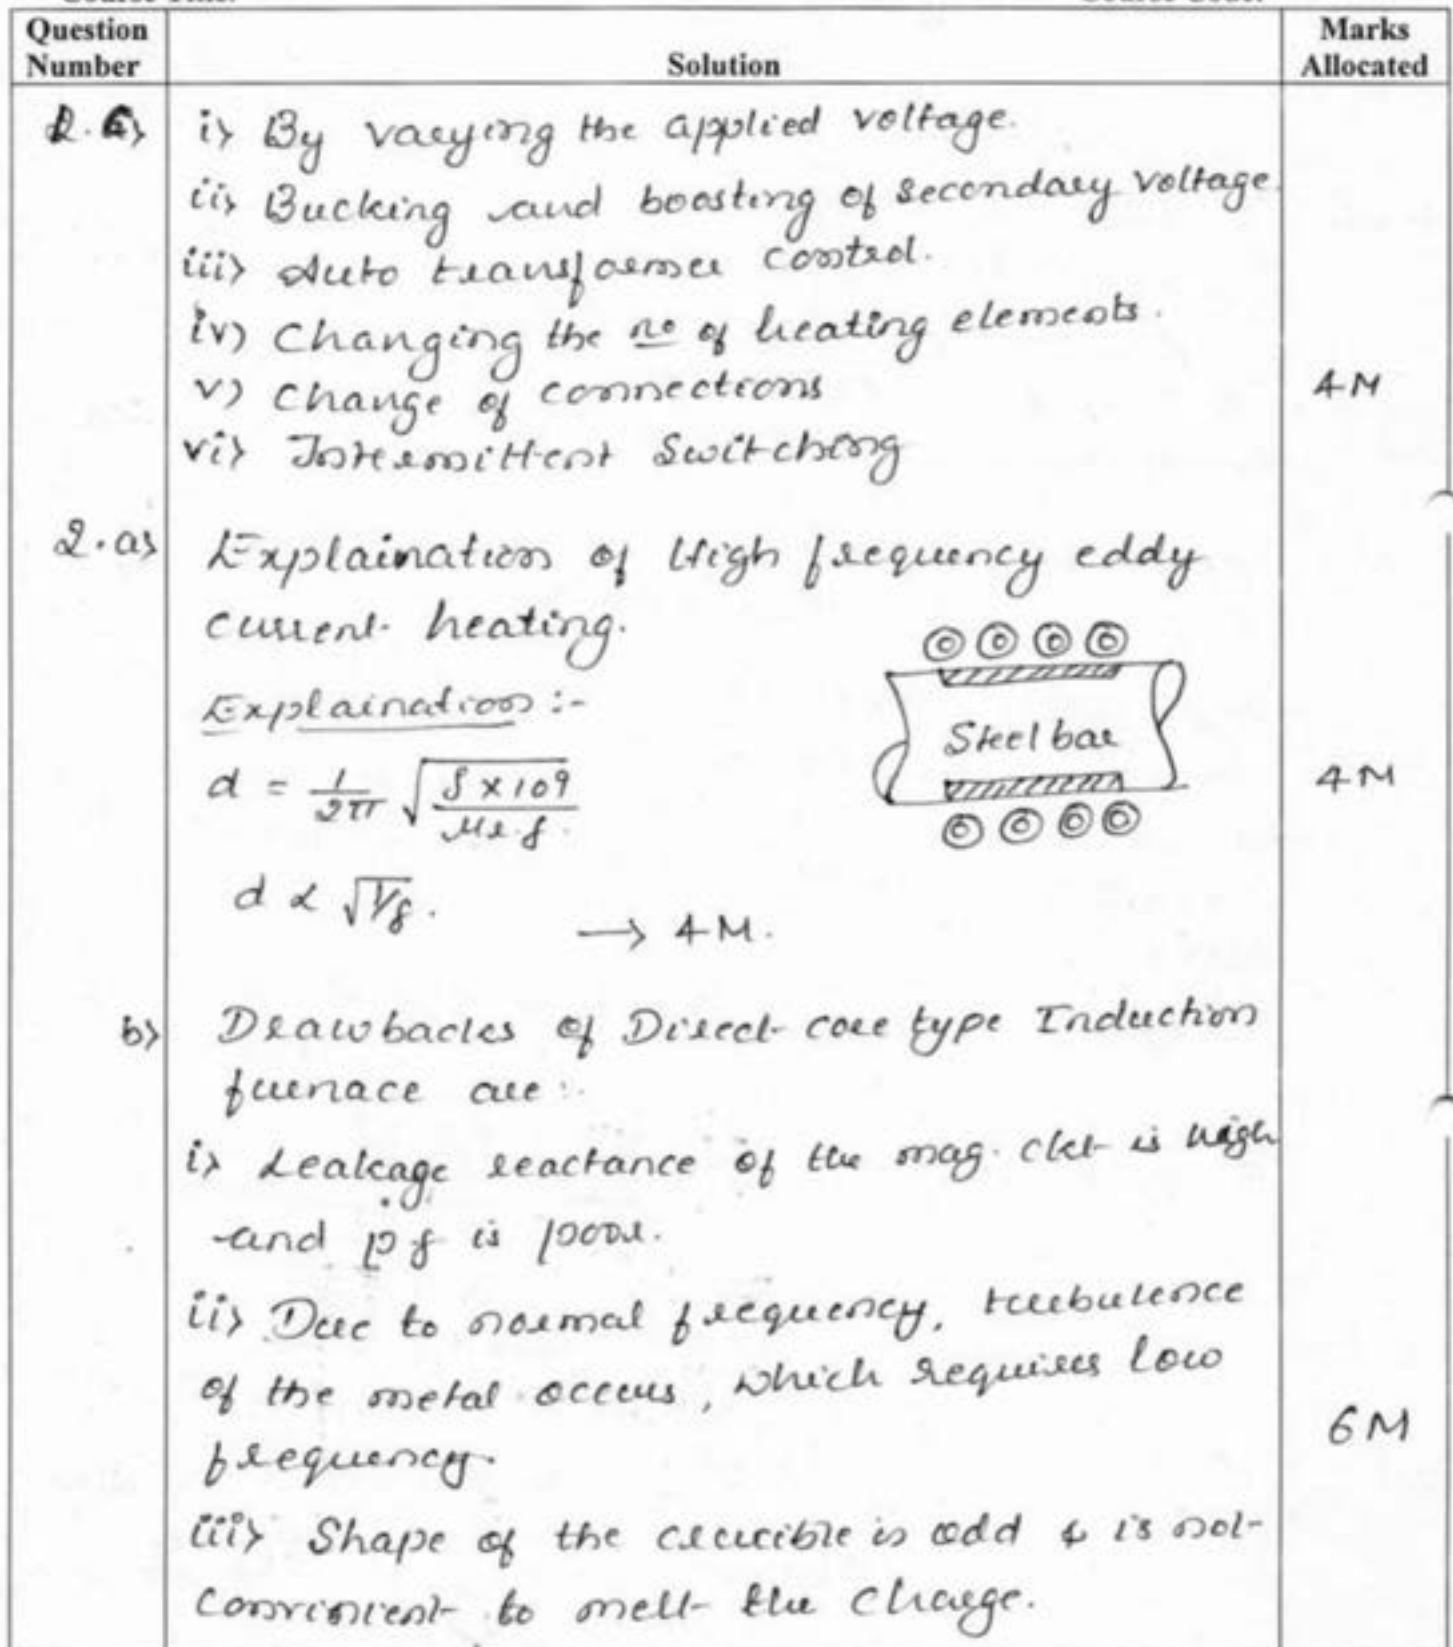 Question
Number
Solution
Marks
Allocated
i) By varying the applied voltage.
ii) Bucking and boosting of secondary voltage.
iii) Auto transformer control.
iv) Changing the no of heating elements.
v) Change of connections
4M
vi) Intermittent Switching
2.a) Explaination of High frequency eddy
current heating.
Explaination :-
Steel bar
d = 1/2π √(ρ × 109 / μr.f)
4M
d α √1/f.
→ 4M.
b) Drawbacks of Direct core type Induction
furnace are:
i) Leakage reactance of the mag. ckt is high
and p.f is poor.
ii) Due to normal frequency, turbulence
of the metal occurs, which requires low
frequency.
6M
iii) Shape of the crucible is odd & is not
convinient to melt the charge.